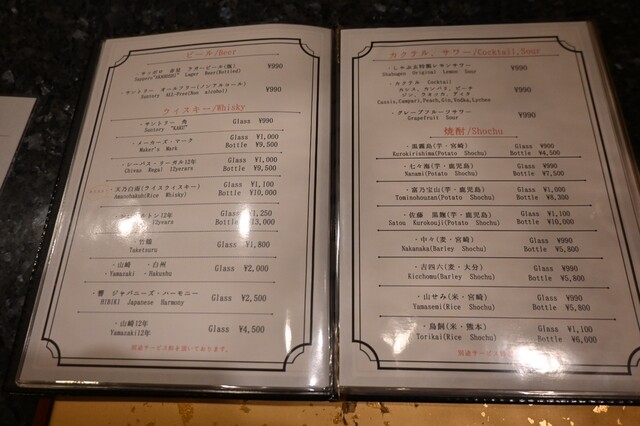 ビール/Beer
・サッポロ 赤星 ラガービール(瓶) ¥990
Sapporo"AKABOSHI" Lager Beer(Bottled)
・サントリー オールフリー(ノンアルコール) ¥990
Suntory ALL-Free(Non alcohol)
ウィスキー/Whisky
・サントリー 角 Glass ¥990
Suntory "KAKU"
・メーカーズ・マーク Glass ¥1,000
Maker's Mark Bottle ¥9,500
・シーバス・リーガル12年 Glass ¥1,000
Chivas Regal 12years Bottle ¥9,500
・天乃白鶴(ライスウィスキー) Glass ¥1,100
(Rice Whisky) Bottle ¥10,000
12年 ¥1,250
12years ¥13,000
竹鶴 Glass ¥1,800
Taketsuru
・山崎 ・白州 Glass ¥2,000
・Yamasaki ・Hakushu
・響 ジャパニーズ・ハーモニー Glass ¥2,500
HIBIKI Japanese Harmony
・山崎12年 Glass ¥4,500
Yamazaki12 years
別途サービス料を頂いております。
カクテル、サワー/Cocktail,Sour
・しゃぶ玄特製レモンサワー ¥990
Shabugen Original Lemon Sour
・カクテル Cocktail ¥990
カシス、カンパリ、ピーチ
ジン、ウォッカ、ライチ
Cassis,Campari,Peach,Gin,Vodka,Lychee
・グレープフルーツサワー ¥990
Grapefruit Sour
焼酎/Shochu
・黒霧島(芋・宮崎) Glass ¥900
Kurokirishima(Potato Shochu) Bottle ¥4,500
・七々海(芋・鹿児島) Glass ¥990
Nanami(Potato Shochu) Bottle ¥7,500
・富乃宝山(芋・鹿児島) Glass ¥1,000
Tominohouzan(Potato Shochu) Bottle ¥8,500
・佐藤 黒麹(芋・鹿児島) Glass ¥1,100
Satou Kurokouji(Potato Shochu) Bottle ¥10,000
・中々(麦・宮崎) Glass ¥990
Nakanaka(Barley Shochu) Bottle ¥5,800
・吉四六(麦・大分) Glass ¥990
Kicchomu(Barley Shochu) Bottle ¥5,800
・山せみ(米・宮崎) Glass ¥990
Yamasemi(Rice Shochu) Bottle ¥5,800
・鳥飼(米・熊本) Glass ¥1,100
Torikai(Rice Shochu) Bottle ¥6,000
別途サービス料